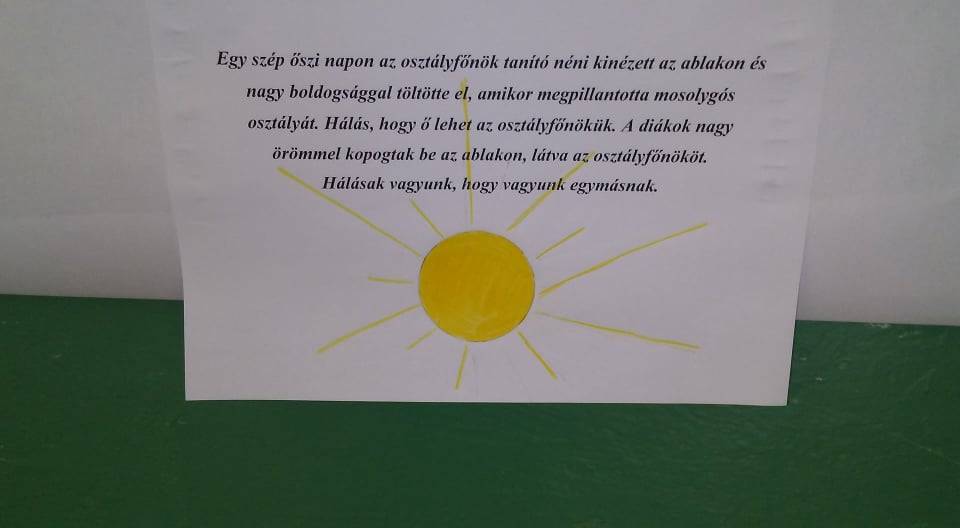 Egy szép őszi napon az osztályfőnök tanító néni kinézett az ablakon és
nagy boldogsággal töltötte el, amikor megpillantotta mosolygós
osztályát. Hálás, hogy ő lehet az osztályfőnökük. A diákok nagy
örömmel kopogtak be az ablakon, látva az osztályfőnököt.
Hálásak vagyunk, hogy vagyunk egymásnak.